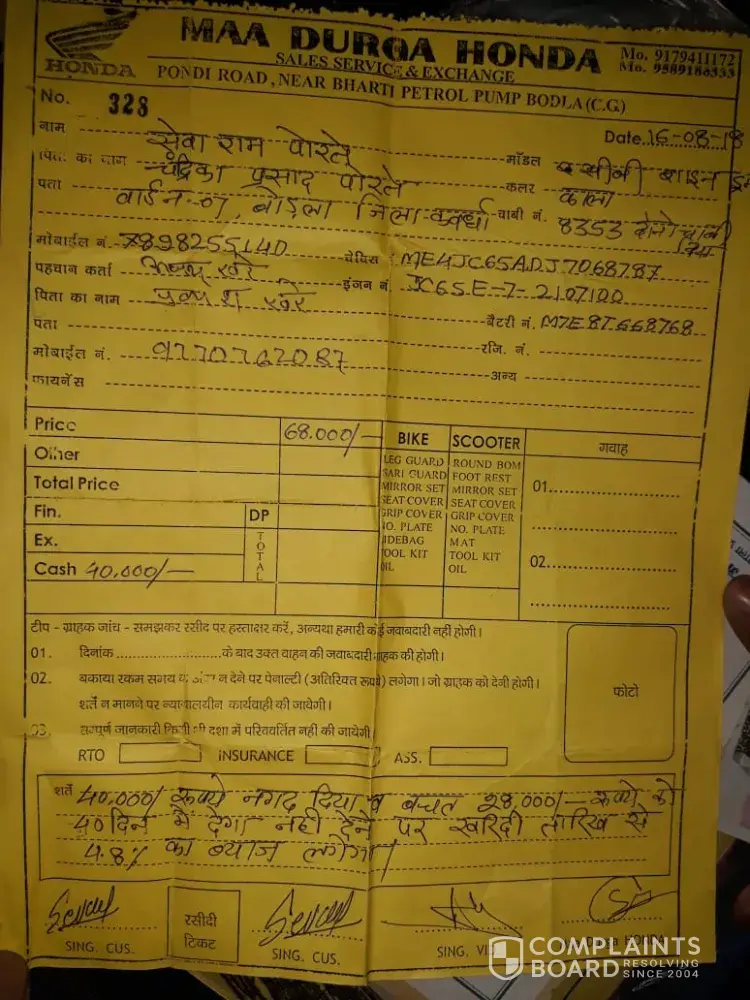 MAA DURGA HONDA
HONDA
SALES SERVICE & EXCHANGE
Mo. 9179411172
PONDI ROAD, NEAR BHARTI PETROL PUMP BODLA (C.G.)
No. 328
Date. 16-08-18
नाम सेवा राम पोरते
मॉडल सीबी शाइन
पिता का नाम चंद्रिका प्रसाद पोरते
कलर काला
पता वार्ड न-07, बोड़ला जिला-कवर्धा
चाबी नं. 8353 दोनो चाबी दिया
मोबाईल नं. 7898255140
चेचिस ME4JC65ADJ7068787
पहचान कर्ता
इंजन नं. JC65-E-7-2107100
पिता का नाम
पता
बैटरी नं.
मोबाईल नं. 9770767087
रजि. नं.
फायनेंस
अन्य
Price 68.000/-
BIKE
SCOOTER
गवाह
Other
Total Price
Fin.
DP
Ex.
TOTAL
Cash 40,000/-
LEG GUARD
SARI GUARD
MIRROR SET
SEAT COVER
GRIP COVER
NO. PLATE
SIDEBAG
TOOL KIT
OIL
ROUND BOM
FOOT REST
MIRROR SET
SEAT COVER
GRIP COVER
NO. PLATE
MAT
TOOL KIT
OIL
01.
02.
टीप - ग्राहक जांच - समझकर रसीद पर हस्ताक्षर करें, अन्यथा हमारी कोई जवाबदारी नहीं होगी।
01. दिनांक ........................ के बाद उक्त वाहन की जवाबदारी ग्राहक की होगी।
02. बकाया रकम समय के अंदर न देने पर पेनाल्टी (अतिरिक्त रूपये) लगेगा। जो ग्राहक को देनी होगी।
शर्ते न मानने पर न्यायालयीन कार्यवाही की जायेगी।
03. सम्पूर्ण जानकारी किसी भी दशा में परिवर्तित नहीं की जायेगी
फोटो
RTO
INSURANCE
ASS.
शर्ते 40.000/ रूपये नगद दिया व बचत 28,000/- रूपये को
40 दिन में देगा नही देने पर खरिदी तारिख से
4.8% का ब्याज लगेगा।
SING. CUS.
रसीदी टिकट
SING. CUS.
HONDA
COMPLAINTS BOARD
RESOLVING SINCE 2004